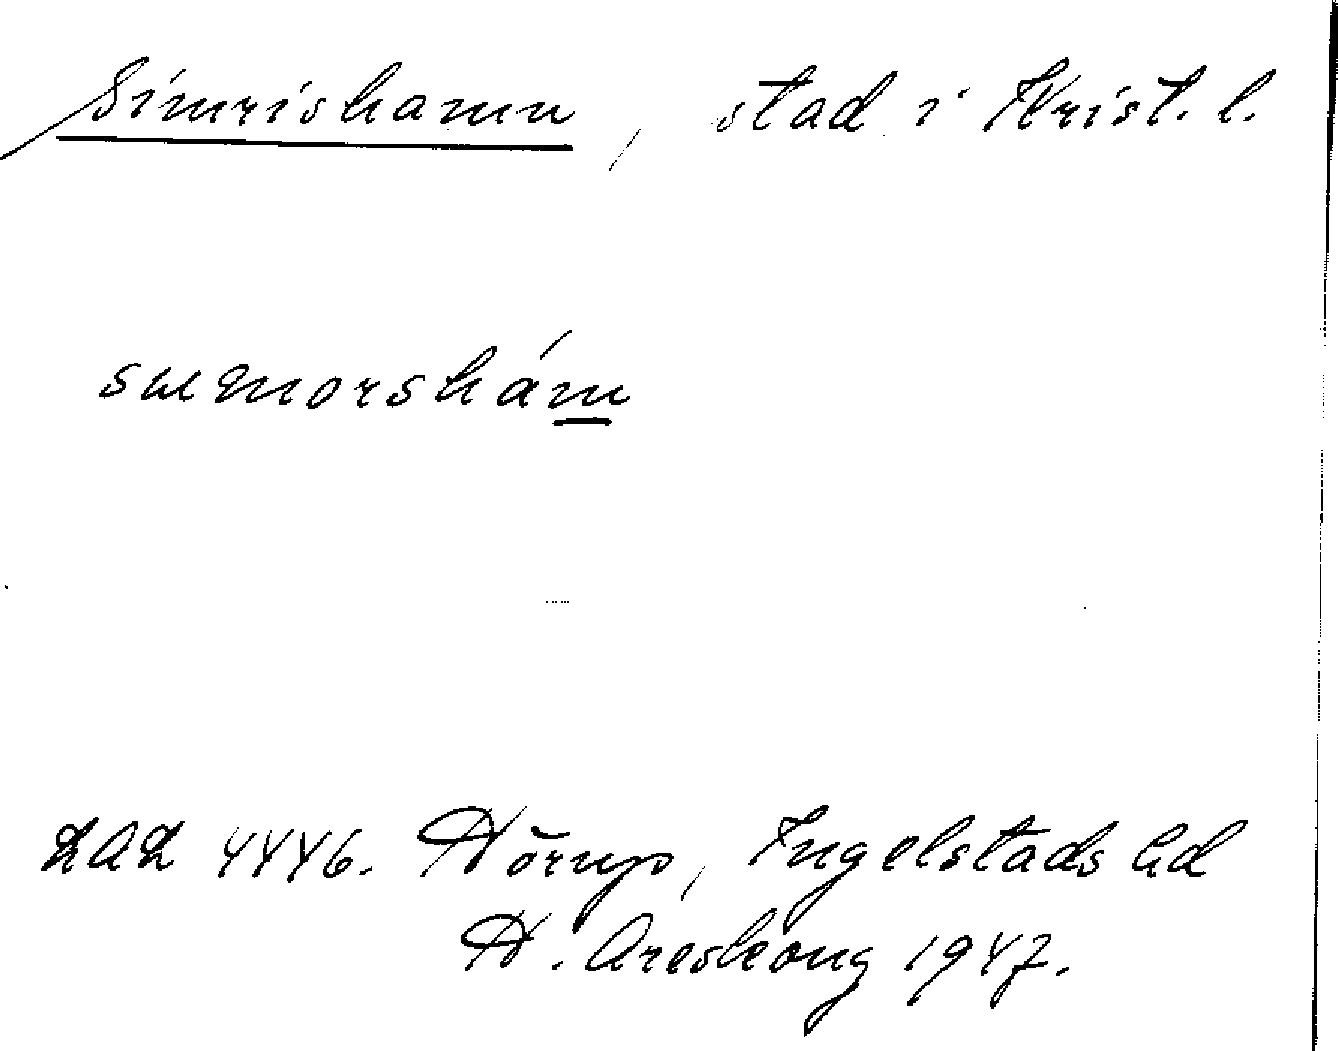 Simrishamn, stad i Krist. l.
LAL 4446. Hörup, Ingelstads hd
H. Areskoug 1947.